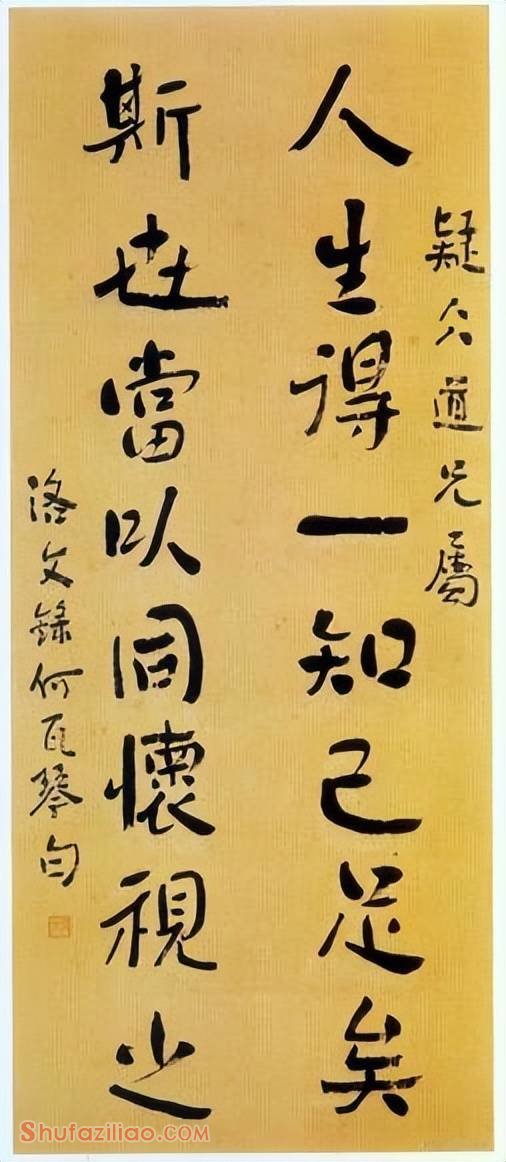 疑仌道兄屬
人生得一知己足矣
斯世當以同懷視之
洛文錄何瓦琴句
Shufaziliao.COM